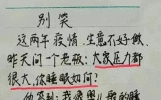 别笑
这两年疫情.生意不好做.
昨天问一个老板:大家压力都
很大,你睡眠如何?